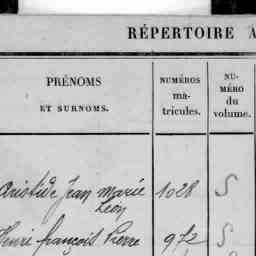 RÉPERTOIRE A
PRÉNOMS
ET SURNOMS.
NUMÉROS
ma-
tricules.
NU-
MÉRO
du
volume.
Aristide Jean Marie 1028 S
Léon
Henri François Pierre 972 S